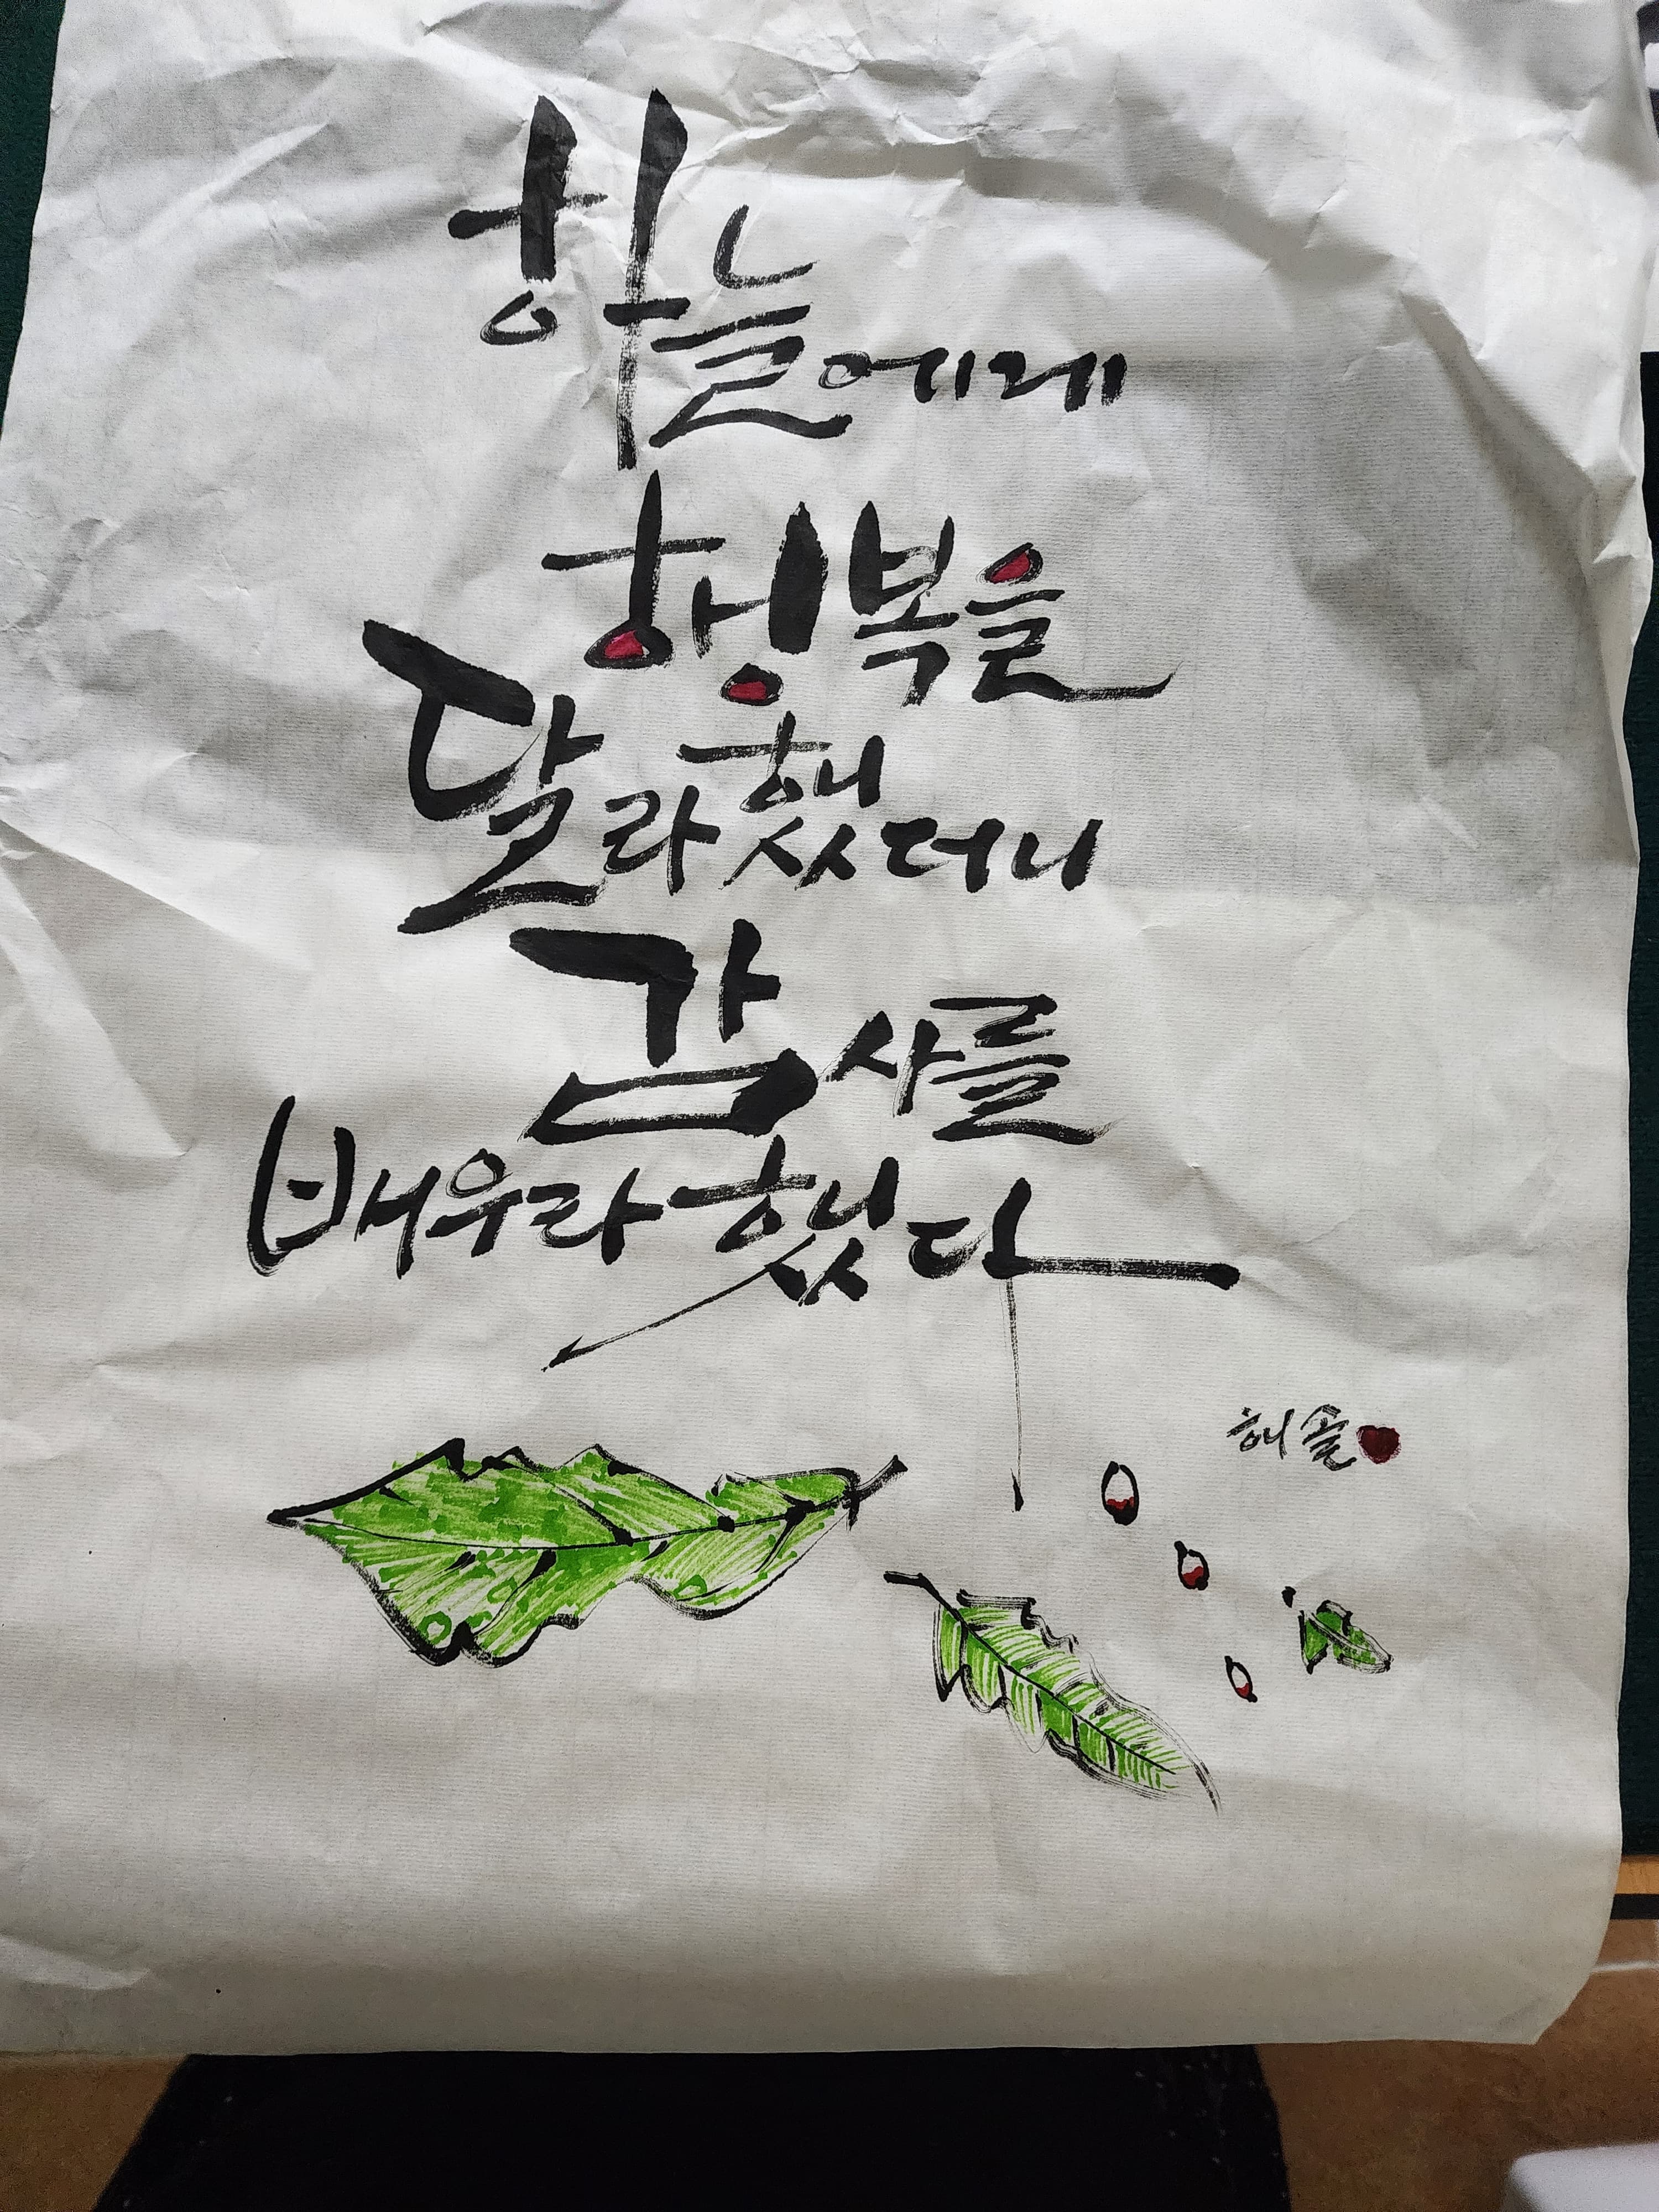 하늘에게
행복을
달라했더니
감사를
배우라했다
해솔